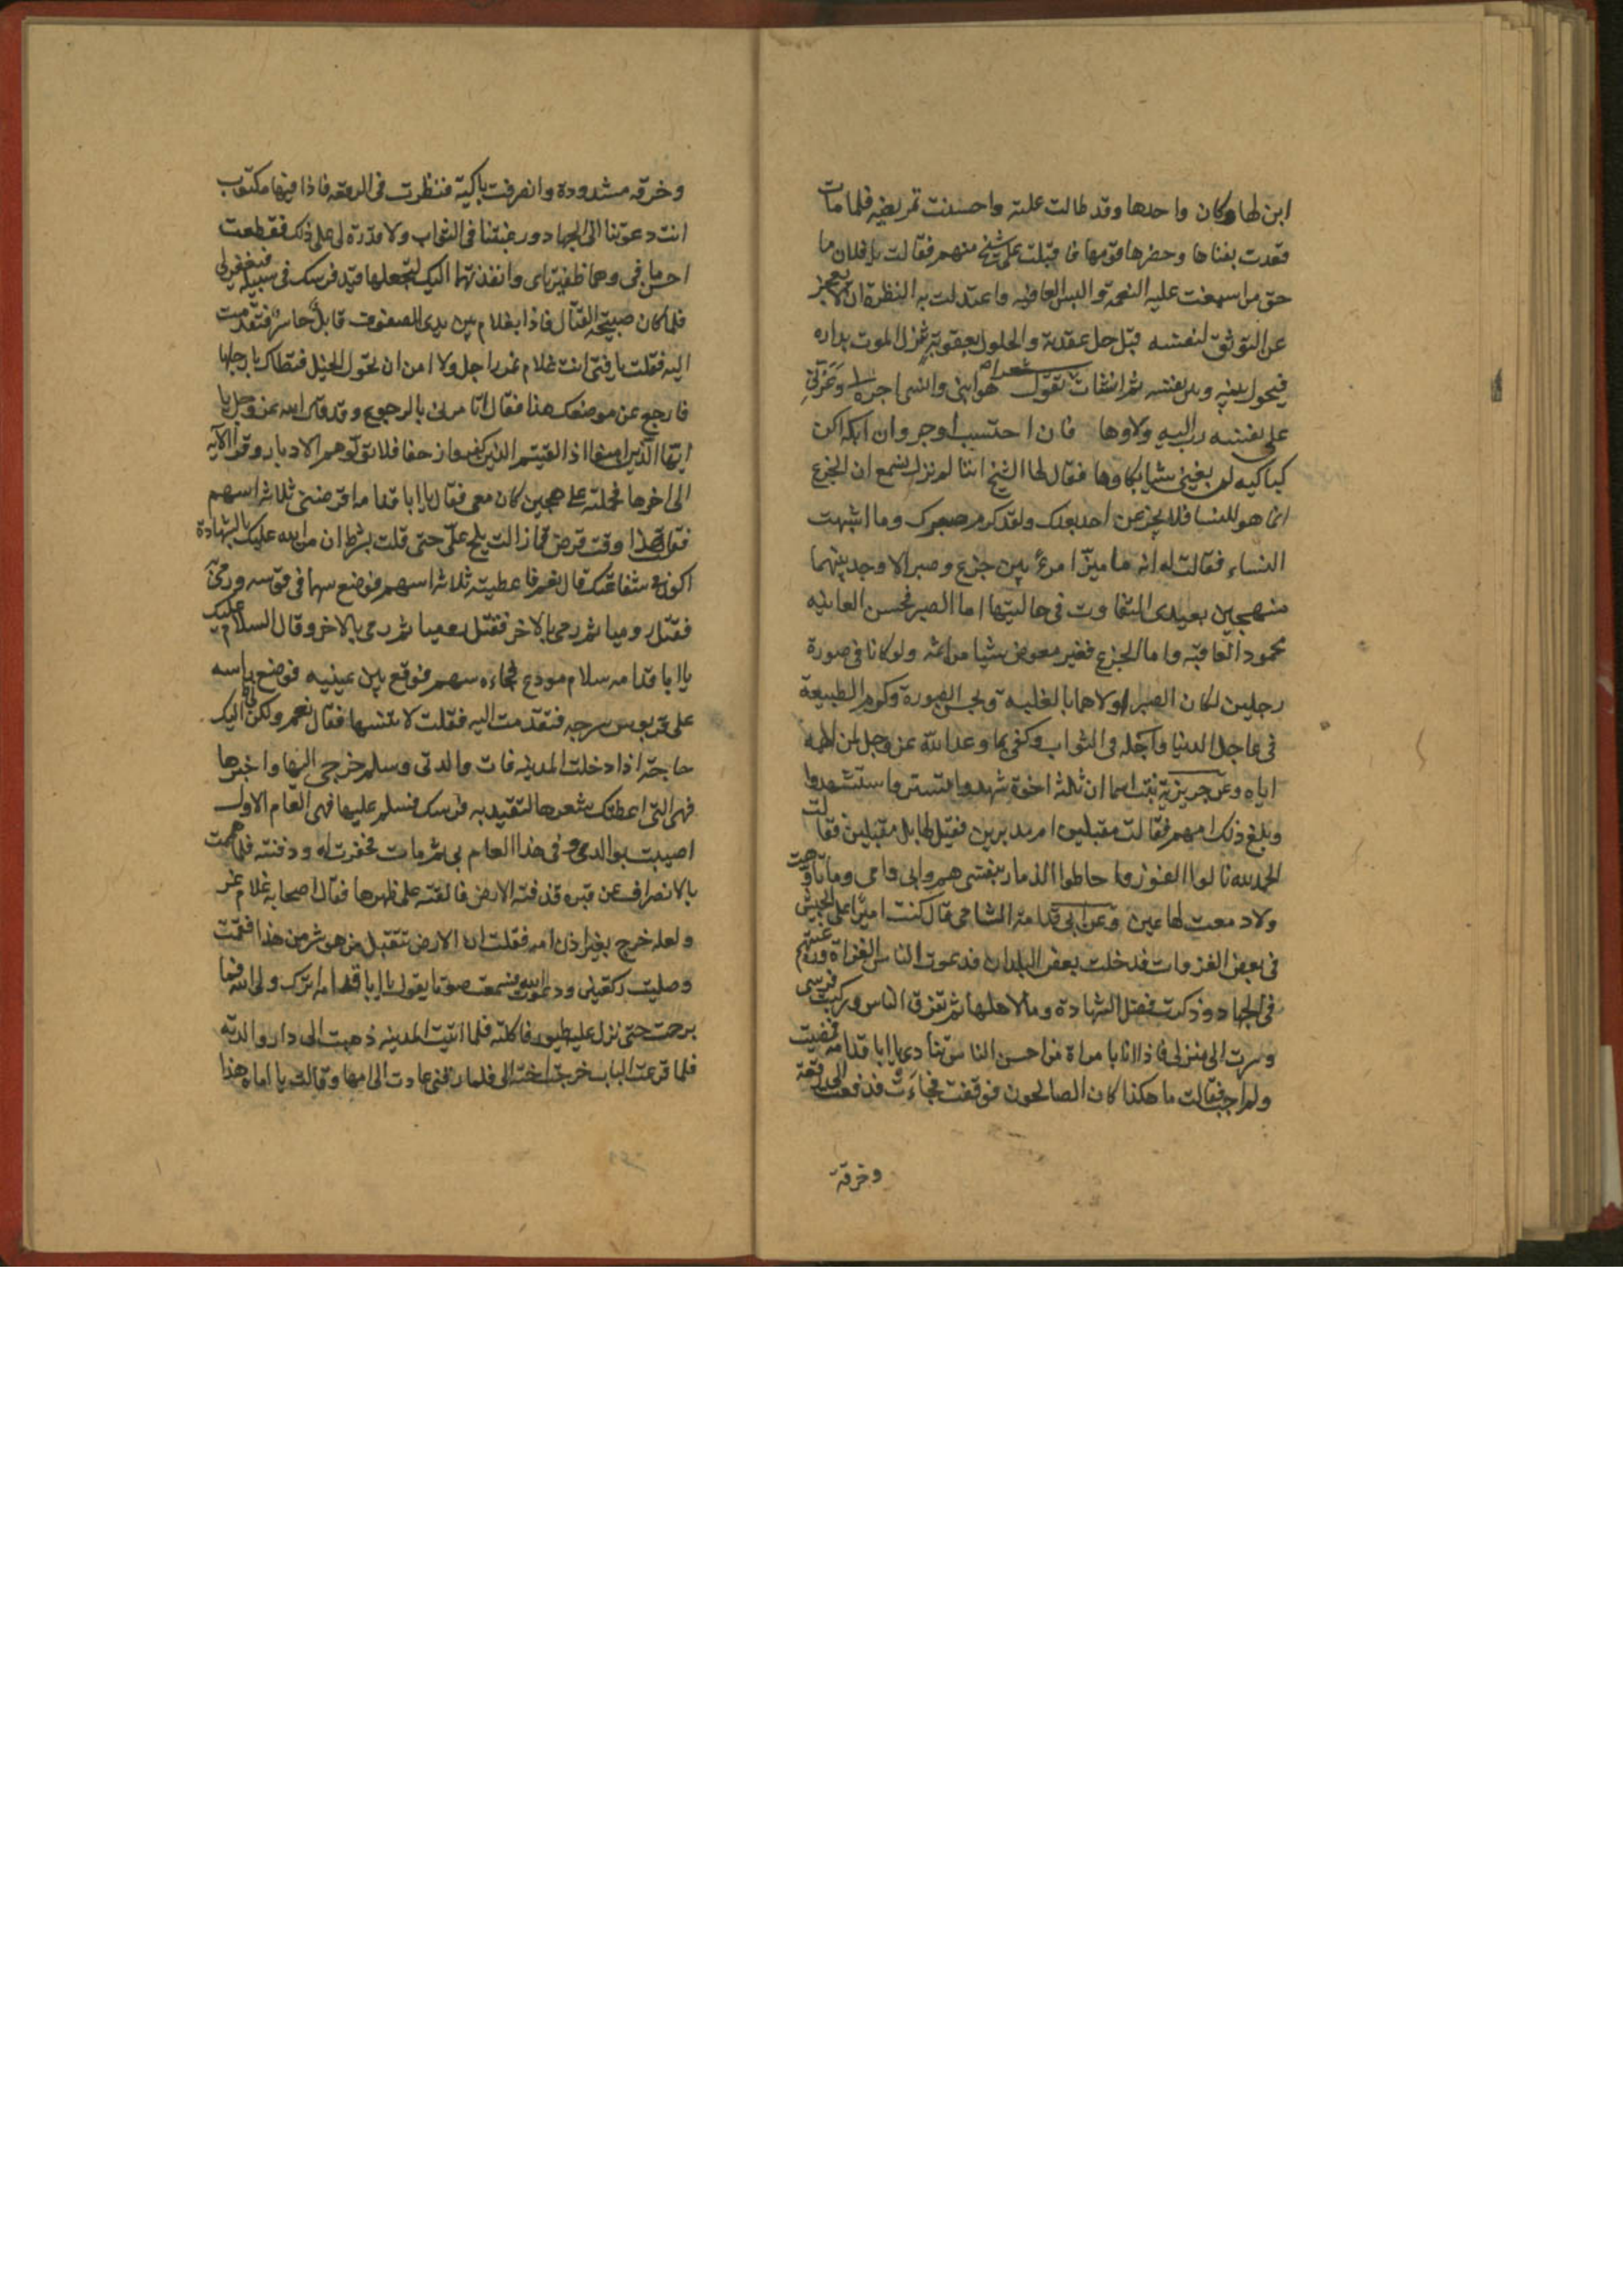 ابن لها وكان واحدها وقد طالت علته واحسنت تمريضه فلما مات
قعدت بفناها وحضرها قومها فاقبلت على شيخ منهم فقالت يا فلان ما
حق من اسبغت عليه النعمة والبس العافيه واعتدلت به النظرة ان لا يعجز
عن التوثق لنفسه قبل حل عقدته والحلول بعقوته ينزل الموت بداره
فيحول بينه وبين نفسه ثم انشات تقول شعرا هو ابنى وانسى اجره لى وعزنى
على نفسه رب اليه ولاوها فان احتسب اوجر وان ابكه اكن
كباكيه لم يغنى شيا بكاوها فقال لها الشيخ اننا لم نزل نسمع ان الجزع
انما هو للنسا فلا يجزعن احد بعدك ولقد كرم صبرك وما اشبهت
النساء فقالت له انه ما ميز امرء بين جزع وصبر الا وجد بينهما
منهجين بعيدى التفاوت فى حالتيهما اما الصبر فحسن العلانيه
محمود العاقبة واما الجزع فغير معوض شيا من اثمه ولو كانا فى صورة
رجلين لكان الصبر اولاهما بالغلبة وبحسن الصورة وكرم الطبيعة
فى عاجل الدنيا وآجله فى الثواب وكفى بما وعد الله عز وجل لمن الهمه
اياه وعن جويرية بنت اسما ان ثلثة اخوة شهدوا تستر واستشهدوا
وبلغ ذلك امهم فقالت مقبلين ام مدبرين فقيل لها بل مقبلين فقالت
الحمد لله نالوا الفوز واحاطوا الذمار بنفسى هم وابى وامى وما تاوهت
ولا دمعت لها عين وعن ابى قدامة الشامى قال كنت اميرا على الجيش
فى بعض الغزوات فدخلت بعض البلدان فدعوت الناس للغزاة ورغبتهم
فى الجهاد وذكرت فضل الشهادة وما لاهلها ثم تفرق الناس وركبت فرسى
وسرت الى منزلى فاذا انا بامراة من احسن الناس تنادى يا ابا قدامة فمضيت
ولم اجب فقالت ما هكذا كان الصالحون فوقفت فجاءت ودفعت الى رقعة
وخرقة
وخرقه مشدودة وانصرفت باكية فنظرت فى الرقعه فاذا فيها مكتوب
انت دعوتنا الى الجهاد ورغبتنا فى الثواب ولا قدرة لى على ذلك فقطعت
احسن ما فى وهما ظفيرتاى وانفذتهما اليك لتجعلها قيد فرسك فى سبيله فيغفر لى
فلما كان صبيحة القتال فاذا بغلام بين يدى الصفوف قابل حاسر فتقدمت
اليه فقلت يا فتى انت غلام غر راجل ولا امن ان تجول الخيل فتطاك بارجلها
فارجع عن موضعك هذا فقال اتامرنى بالرجوع وقد قال الله عز وجل يا
ايها الذين امنوا اذا لقيتم الذين كفروا زحفا فلا تولوهم الادبار وقرا الآيه
الى اخرها فحملته على هجين كان معى فقال يا ابا قدامه اقرضنى ثلاثة اسهم
فقلت هذا وقت قرض فما زال يلح على حتى قلت بشرط ان من الله عليك بالشهادة
اكون فى شفاعتك قال نعم فاعطيته ثلاثة اسهم فوضع سهما فى قوسه ورمى
فقتل روميا ثم رمى بالاخر فقتل روميا ثم رمى بالاخر وقال السلام عليك
يا ابا قدامه سلام مودع فجاءه سهم فوقع بين عينيه فوضع راسه
على قربوس سرجه فتقدمت اليه فقلت لا تنسها فقال نعم ولكن لى اليك
حاجة اذا دخلت المدينه فات والدتى وسلم خرجى اليها واخبرها
فهى التى اعطتك شعرها لتقيد به فرسك فسلم عليها فهى العام الاول
اصيبت بوالدى وفى هذا العام بى ثم مات فحفرت له ودفنته فلما هممت
بالانصراف عن قبره قذفته الارض فالقته على ظهرها فقال اصحابه غلام غر
ولعله خرج بغير اذن امه فقلت ان الارض تتقبل من هو شر من هذا فقمت
وصليت ركعتين ودعوت الله فسمعت صوتا يقول يا ابا قدامه اترك ولى الله فما
برحت حتى نزل عليه طيور فاكلته فلما اتيت المدينه ذهبت الى دار والدته
فلما قرعت الباب خرجت اخته الى فلما راتنى عادت الى امها وقالت يا اماه هذا